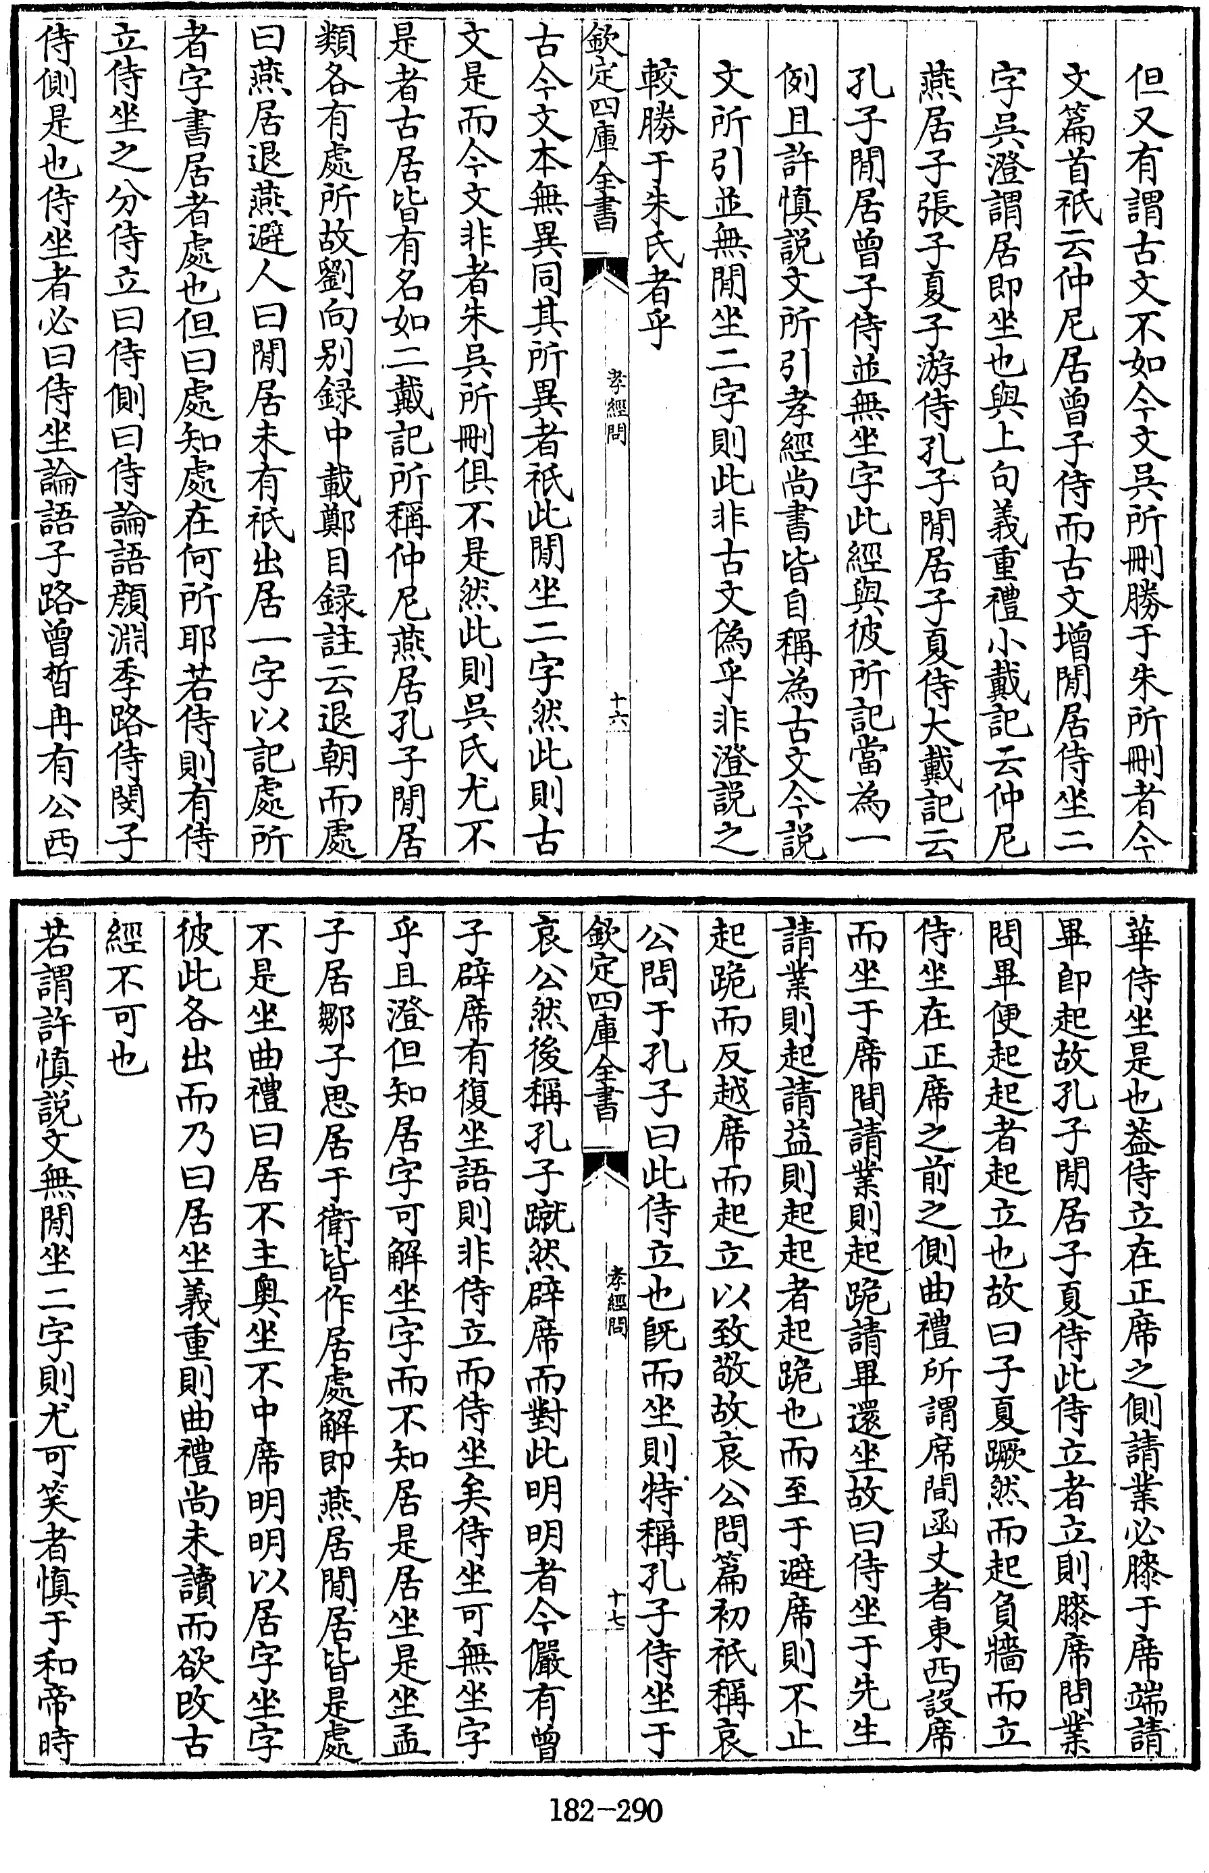 但又有謂古文不如今文吳所刪勝于朱所刪者今
文篇首祇云仲尼居曾子侍而古文增閒居侍坐二
字吳澄謂居即坐也與上句義重禮小戴記云仲尼
燕居子張子夏子游侍孔子閒居子夏侍大戴記云
孔子閒居曾子侍並無坐字此經與彼所記當為一
例且許慎説文所引孝經尚書皆自稱為古文今説
文所引並無閒坐二字則此非古文偽乎非澄説之
較勝于朱氏者乎
欽定四庫全書
孝經問
十六
古今文本無異同其所異者祇此閒坐二字然此則古
文是而今文非者朱吳所刪俱不是然此則吳氏尤不
是者古居皆有名如二戴記所稱仲尼燕居孔子閒居
類各有處所故劉向別録中載鄭目録註云退朝而處
曰燕居退燕避人曰閒居未有祇出居一字以記處所
者字書居者處也但曰處知處在何所耶若侍則有侍
立侍坐之分侍立曰侍側曰侍論語顏淵季路侍閔子
侍側是也侍坐者必曰侍坐論語子路曾晳冉有公西
華侍坐是也葢侍立在正席之側請業必膝于席端請
畢卽起故孔子閒居子夏侍此侍立者立則膝席問業
問畢便起起者起立也故曰子夏蹶然而起負牆而立
侍坐在正席之前之側曲禮所謂席間函丈者東西設席
而坐于席間請業則起跪請畢還坐故曰侍坐于先生
請業則起請益則起起者起跪也而至于避席則不止
起跪而反越席而起立以致敬故哀公問篇初祇稱哀
公問于孔子曰此侍立也既而坐則特稱孔子侍坐于
欽定四庫全書
孝經問
十七
哀公然後稱孔子蹴然辟席而對此明明者今儼有曾
子辟席有復坐語則非侍立而侍坐矣侍坐可無坐字
乎且澄但知居字可解坐字而不知居是居坐是坐孟
子居鄒子思居于衛皆作居處解即燕居閒居皆是處
不是坐曲禮曰居不主奥坐不中席明明以居字坐字
彼此各出而乃曰居坐義重則曲禮尚未讀而欲改古
經不可也
若謂許慎説文無閒坐二字則尤可笑者慎于和帝時
182-290